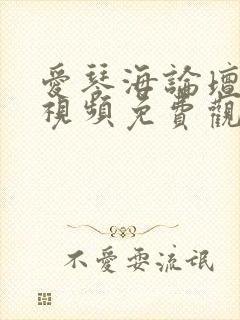 愛琴海論壇
視頻免費觀
不愛耍流氓